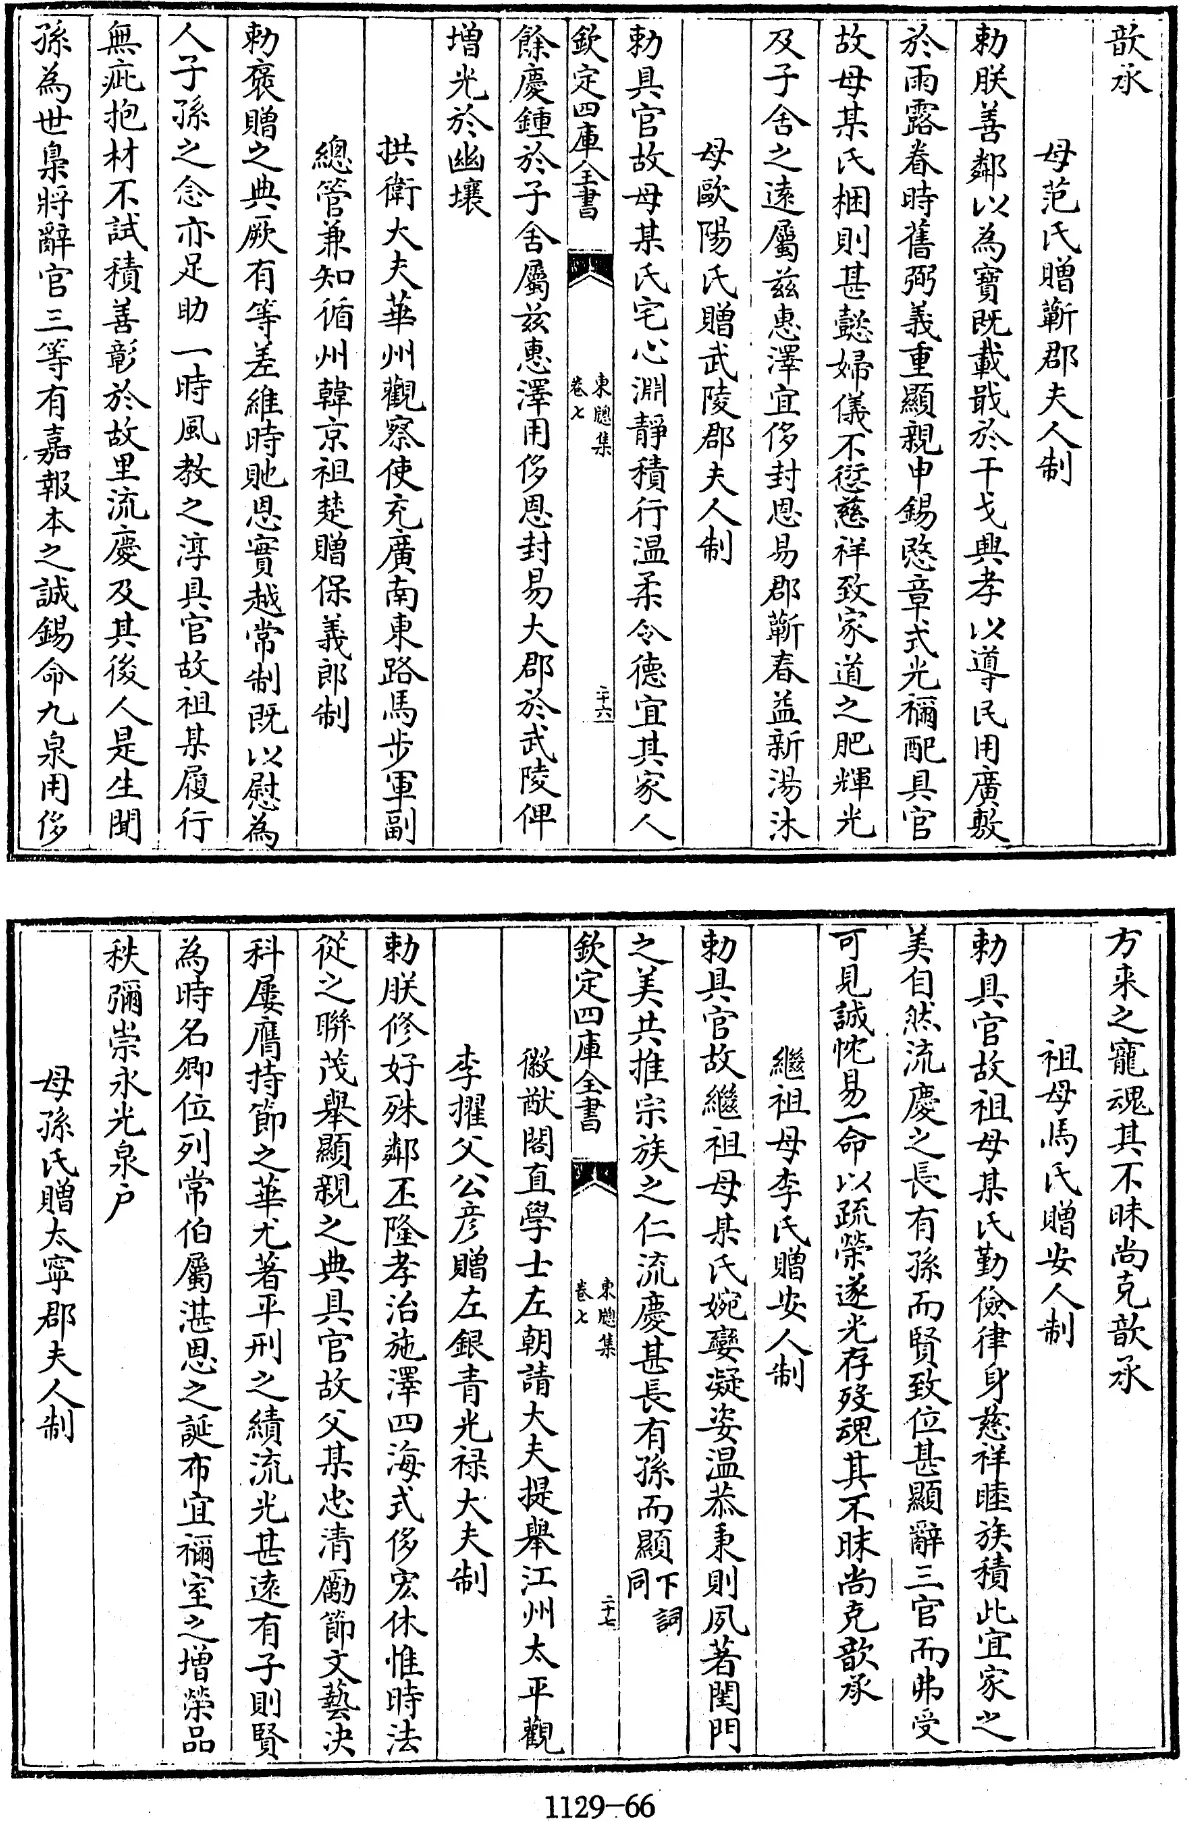 歆承
母范氏贈蘄郡夫人制
勅朕善鄰以為寳既載戢於干戈興孝以導民用廣敷
於雨露眷時舊弼義重顯親申錫愍章式光禰配具官
故母某氏梱則甚懿婦儀不愆慈祥致家道之肥輝光
及子舍之逺屬兹惠澤宜侈封恩易郡蘄春益新湯沐
母歐陽氏贈武陵郡夫人制
勅具官故母某氏宅心淵靜積行温柔令徳宜其家人
欽定四庫全書
東牕集
卷七
二十六
餘慶鍾於子舍屬兹惠澤用侈恩封易大郡於武陵俾
増光於幽壤
拱衛大夫華州觀察使充廣南東路馬步軍副
總管兼知循州韓京祖楚贈保義郎制
勅褒贈之典厥有等差維時貤恩實越常制既以慰為
人子孫之念亦足助一時風教之淳具官故祖某履行
無疵抱材不試積善彰於故里流慶及其後人是生聞
孫為世梟將辭官三等有嘉報本之誠錫命九泉用侈
方来之寵魂其不昧尚克歆承
祖母馬氏贈安人制
勅具官故祖母某氏勤儉律身慈祥睦族積此宜家之
美自然流慶之長有孫而賢致位甚顯辭三官而弗受
可見誠忱易一命以疏榮遂光存殁魂其不昧尚克歆承
繼祖母李氏贈安人制
勅具官故繼祖母某氏婉孌凝姿温恭秉則夙著閨門
之美共推宗族之仁流慶甚長有孫而顯下詞同
欽定四庫全書
東牕集
卷七
二十七
徽猷閣直學士左朝請大夫提舉江州太平觀
李擢父公彦贈左銀青光禄大夫制
勅朕修好殊鄰丕隆孝治施澤四海式侈宏休惟時法
從之聯茂舉顯親之典具官故父某忠清勵節文藝決
科屢膺持節之華尤著平刑之績流光甚逺有子則賢
為時名卿位列常伯屬湛恩之誕布宜禰室之増榮品
秩彌崇永光泉户
母孫氏贈太寜郡夫人制
1129-66